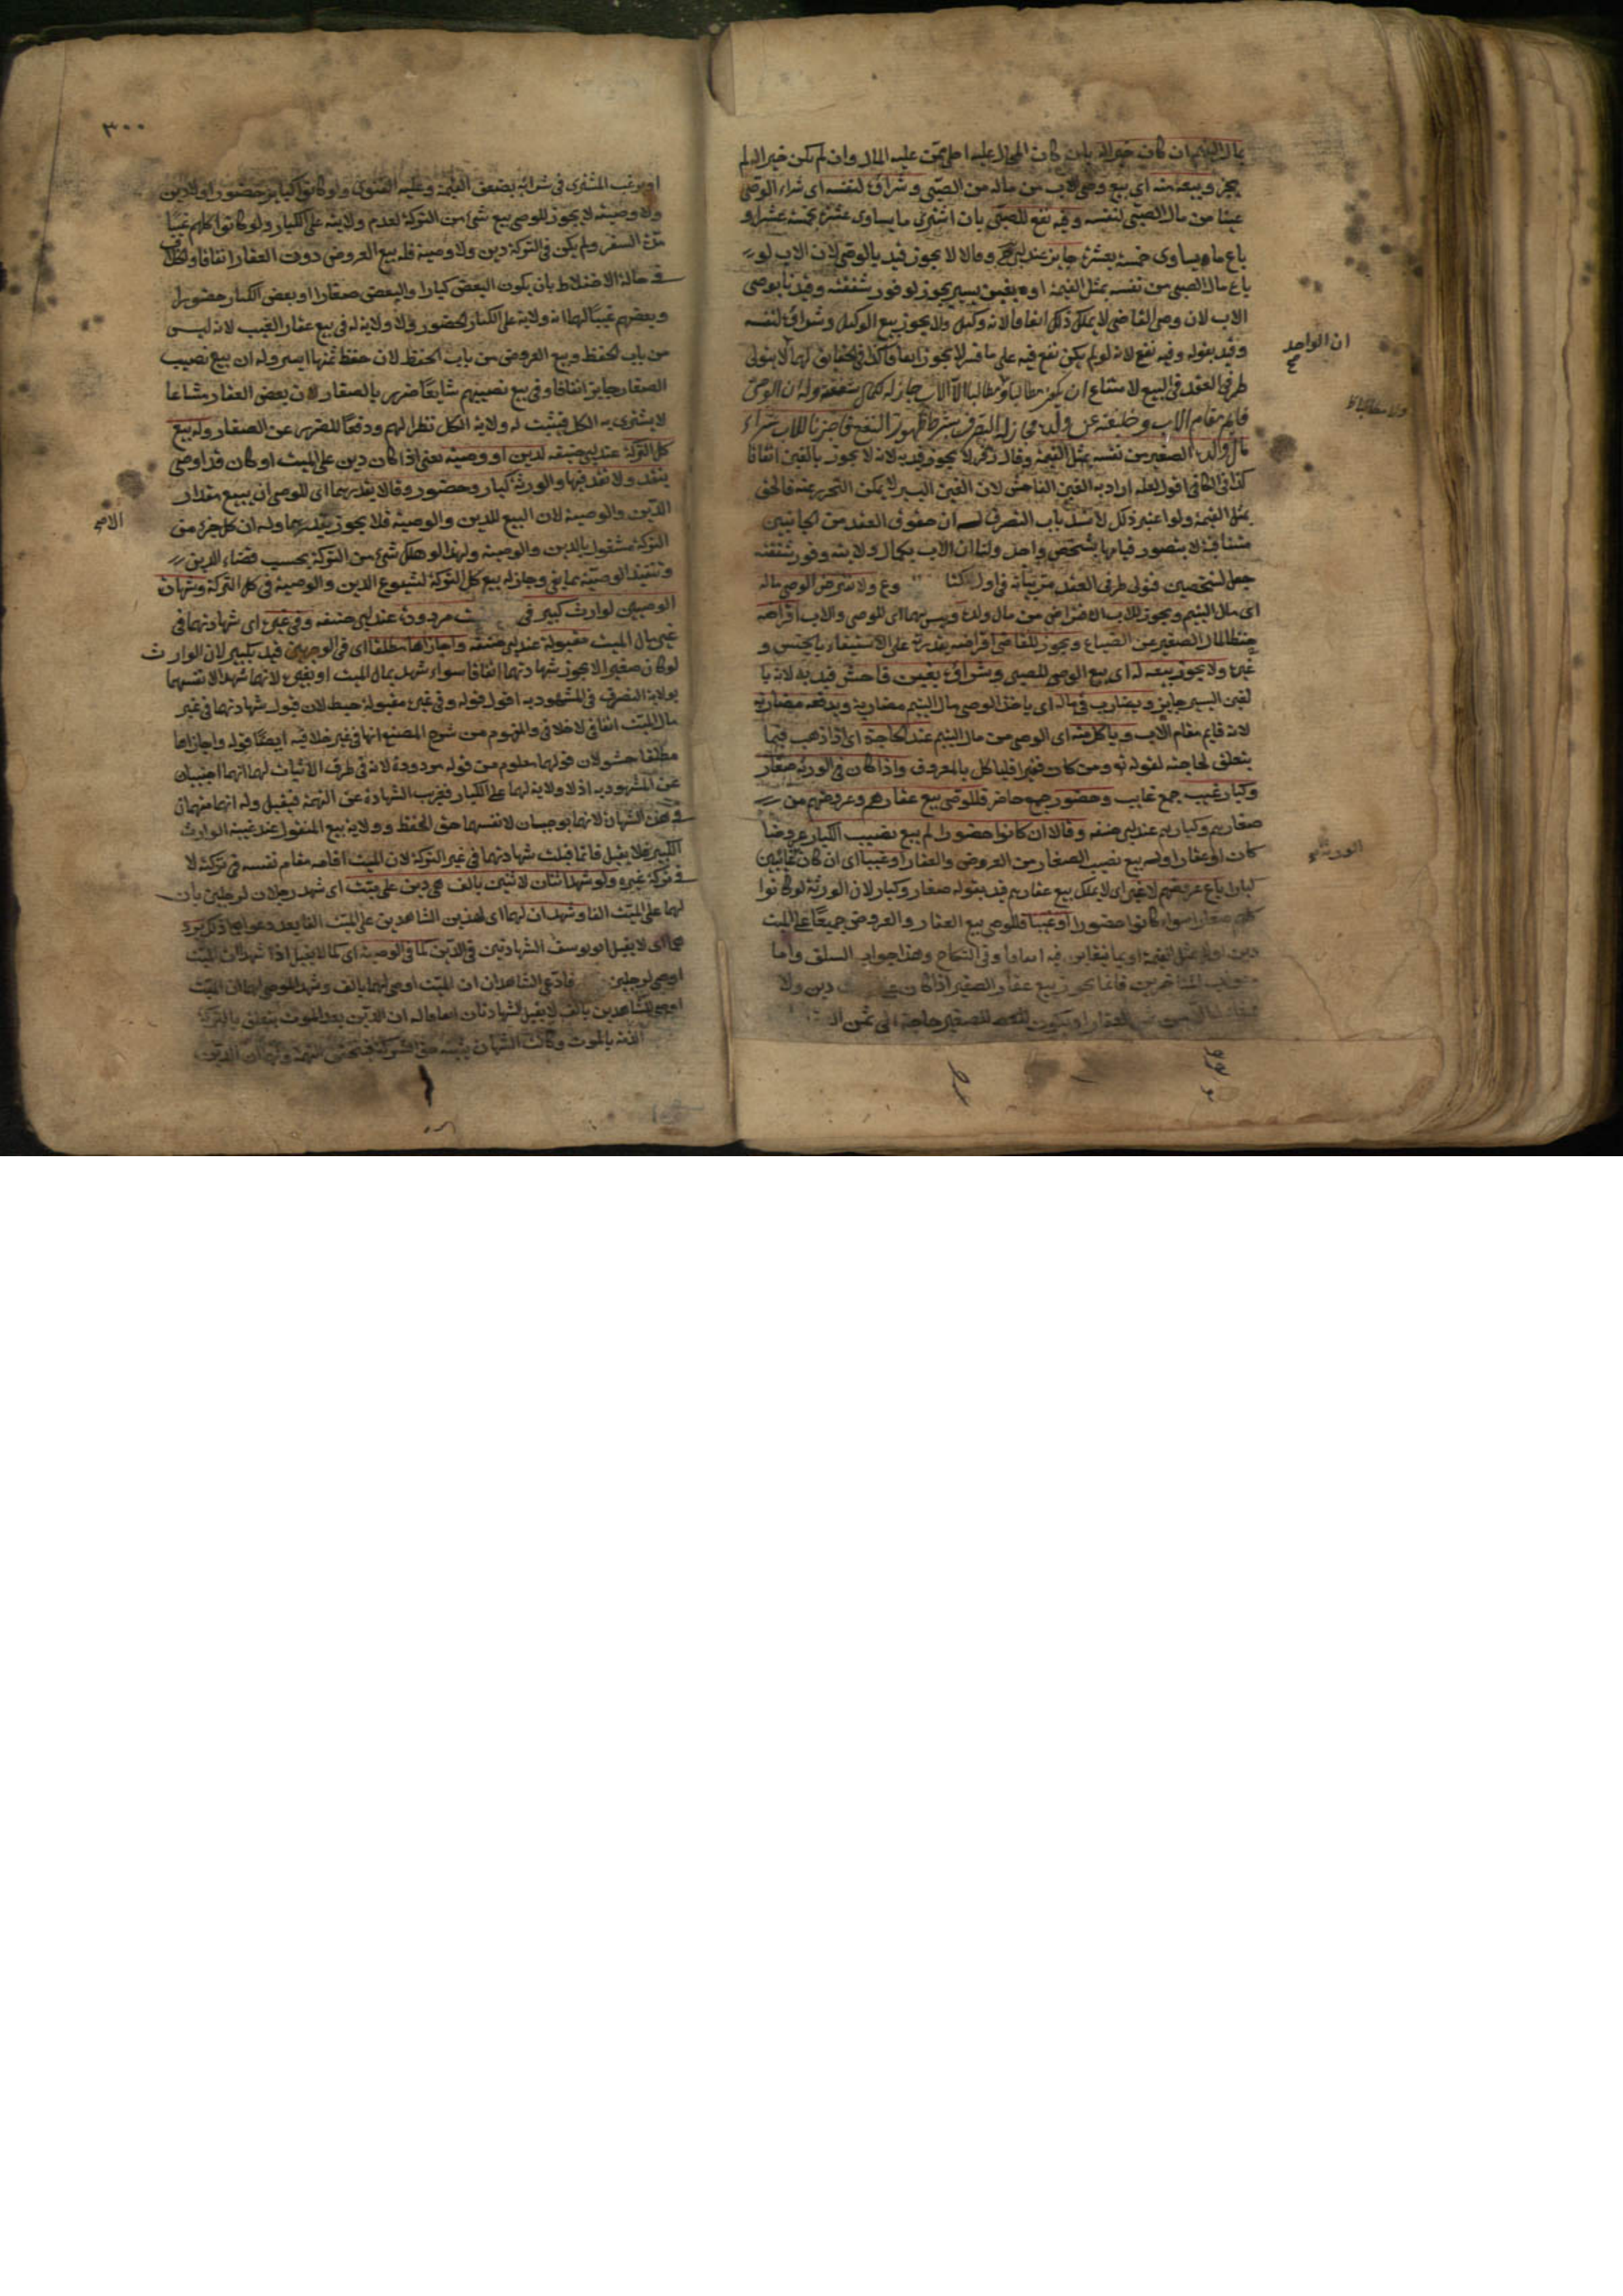 مال اليتيم ان كان خيرا له بان كان المحال عليه املى ممن عليه المال وان لم يكن خيرا له لم
يجز وبيعه منه اي بيع وصي الاب من ماله من الصبي وشراؤه لنفسه اي شراء الوصي
عينا من مال الصبي لنفسه وفيه نفع للصبي بان اشترى ما يساوي عشرة بخمسة عشر او
باع ما يساوي خمسة بعشرة جايز عند ابي وقالا لا يجوز قيد بالوصي لان الاب لو
باع مال الصبي من نفسه بمثل القيمة او بغبن يسير يجوز لوفور شفقته وقيدنا بوصي
الاب لان وصي القاضي لا يملك ذلك اتفاقا لانه وكيل ولا يجوز بيع الوكيل وشراؤه لنفسه
وقيد بقوله وفيه نفع لانه لو لم يكن نفع فيه على ما فسر لا يجوز اتفاقا كذا في الحقايق لهما لا يتولى
طرفي العقد في البيع لامتناع ان يكون مطالبا ومطالبا الا ان الاب جاز له لكمال شفقته وله ان الوصي
قايم مقام الاب وخليفة عن ولده فجاز له التصرف بشرط ظهور النفع فاجزنا للاب شراء
مال ولده الصغير من نفسه بمثل القيمة وقال زفر لا يجوز قيد به لانه لا يجوز بالغبن اتفاقا
كذا في الكافي اقول لعله اراد به الغبن الفاحش لان الغبن اليسير لا يمكن التحرز عنه فالحق
بمثل القيمة ولو اعتبر ذلك لانسد باب التصرف له ان حقوق العقد من الجانبين
متنافية لا يتصور قيامها بشخص واحد ولنا ان الاب بكمال ولايته وفور شفقته
جعل لشخصين فتولى طرفي العقد مر بيانه في اول كتا وع ولا نقرض الوصي ماله
اي مال اليتيم ويجوز للاب الاقتراض من مال ولده وليس لهما اي للوصي والاب اقراضه
حفظا لمال الصغير عن الضياع ويجوز للقاضي اقراضه لقدرته على الاستيفاء بالحبس و
غيره ولا يجوز بيعه له اي بيع الوصي للصبي وشراؤه بغبن فاحش قيد به لانه با
لغبن اليسير جايز ويضارب في ماله اي ياخذ الوصي مال اليتيم مضاربة ويدفعه مضاربة
لانه قايم مقام الاب وياكل منه اي الوصي من مال اليتيم عند الحاجة اي اذا ذهب فيما
يتعلق لحاجته لقوله تع ومن كان فقيرا فلياكل بالمعروف واذا كان في الورثة صغار
وكبار غيب جمع غايب وحضور جمع حاضر فللوصي بيع عقارهم وعروضهم من
صغارهم وكبارهم عند ابي حنيفه وقالا ان كانوا حضورا لم يبع نصيب الكبار عروضا
كان او عقارا وله بيع نصيب الصغار من العروض والعقار او غيبا اي ان كان غائبين
كبارا باع عروضهم لا غير اي لا يملك بيع عقارهم قيد بقوله صغار وكبار لان الورثة لو كانوا
كلهم صغارا سواء كانوا حضورا او غيبا فللوصي بيع العقار والعروض جميعا على الميت
دين او لا بمثل القيمة او بما يتغابن فيه وهذا جواب السلف واما
جواب المتاخرين فانما يجوز بيع عقار الصغير اذا كان دين ولا
العقار او يكون للصغير حاجة الى ثمن
ان الواحد
ولا مطالبا
الورثة
٣٠٠
او يرغب المشتري في شرائه بضعف القيمة وعليه الفتوى ولو كانوا كبارا حضورا ولا دين
ولا وصية لا يجوز للوصي بيع شئ من التركة لعدم ولايته على الكبار ولو كانوا كلهم غيبا
مدة السفر ولم يكن في التركة دين ولا وصية فله بيع العروض دون العقار اتفاقا
في حالة الاختلاط بان يكون البعض كبارا والبعض صغارا او بعض الكبار حضورا
وبعضهم غيبا لهما انه ولاية على الكبار الحضور ولا ولاية له في بيع عقار الغيب لانه ليس
من باب الحفظ وبيع العروض من باب الحفظ لان حفظ ثمنها ايسر وله ان بيع نصيب
الصغار جايز اتفاقا وفي بيع نصيبهم شايعا ضرر بالصغار لان بعض العقار مشاعا
لا يشترى به الكل فيثبت له ولاية الكل نظرا لهم ودفعا للضرر عن الصغار وله بيع
كل التركة عند ابي حنيفه لدين او وصية يعني اذا كان دين على الميت او كان قد اوصى
ينقد ولا نقد فيها والورثة كبار وحضور وقالا بقدرهما اي للوصي ان يبيع مقدار
الدين والوصية لان البيع للدين والوصية فلا يجوز بقدرهما وله ان كل جزء من
التركة مشغول بالدين والوصية ولهذا لو هلك شئ من التركة يحسب قضاء الدين
وتنفيذ الوصية بما بقي وجاز له بيع كل التركة لشيوع الدين والوصية في كل التركة وشهادة
الوصيين لوارث كبير في يت مردودة عند ابي حنيفه وفي غيره اي شهادتهما في
غير مال الميت مقبولة عند ابي حنيفه واجازاها مطلقا اي في الوجهين قيد بكبير لان الوارث
لو كان صغيرا لا يجوز شهادتهما اتفاقا سواء شهد بمال الميت او بغيره لانهما شهدا لانفسهما
بولاية التصرف في المشهود به اقول قوله وفي غيره مقبولة حيط لان قبول شهادتهما في غير
مال الميت اتفاقي لا خلافي والمفهوم من شرح المصنف انها في غير خلافيه ايضا قوله واجازاها
مطلقا حشو لان قولهما معلوم من قوله مردودة لانه في طرف الاثبات لهما انهما اجنبيان
عن المشهود به اذ لا ولاية لهما على الكبار فعريت الشهادة عن التهمة فيقبل وله انهما متهمان
في هذه الشهادة لانهما يوجبان لانفسهما حق الحفظ وولاية بيع المنقول عند غيبة الوارث
الكبير فلا يقبل فانما قبلت شهادتهما في غير التركة لان الميت اقامه مقام نفسه في تركته لا
في تركة غيره ولو شهد اثنان لاثنين بالف هي دين على ميت اي شهد رجلان لرجلين بان
لهما على الميت الفا وشهدان لهما اي لهذين الشاهدين على الميت الفا بعد دعواهما ذلك يرد
هما اي لا يقبل ابو يوسف الشهادتين في الدين كما في الوصية اي كما لا يقبل اذا شهد ان الميت
اوصى لرجلين فادعى الشاهدان ان الميت اوصى لهما بالف وشهد الموصى لهما ان الميت
اوصى للشاهدين بالف لا يقبل الشهادتان له ان الدين بعد الموت يتعلق بالتركة
الذمة بالموت وكانت الشهادة التهمة ولهما ان الدين